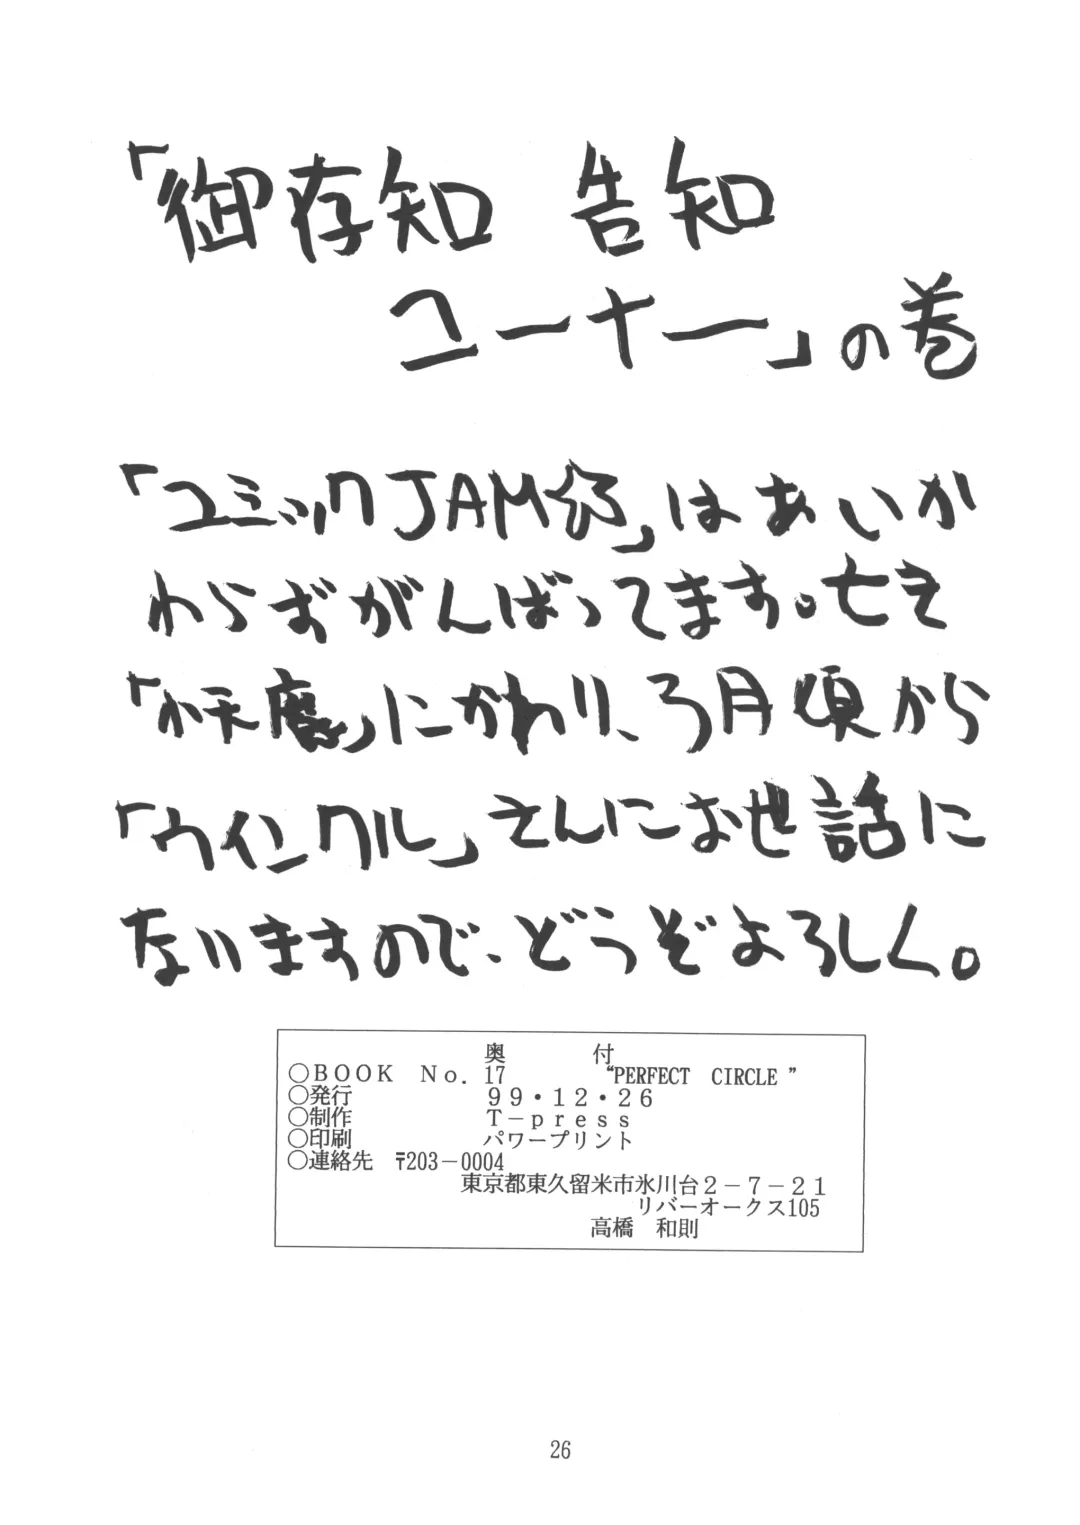 「御存知 告知
コーナー」の巻
「コミックJAM☆」はあいか
わらずがんばってます。亡き
「小天魔」にかわり、3月頃から
「ウインクル」さんにお世話に
なりますので、どうぞよろしく。
奥　　　　付
○ＢＯＯＫ　Ｎｏ．17　　　　“PERFECT CIRCLE ”
○発行　　　　　　９９・１２・２６
○制作　　　　　　Ｔ－ｐｒｅｓｓ
○印刷　　　　　　パワープリント
○連絡先　〒203－0004
東京都東久留米市氷川台２－７－２１
リバーオークス105
高橋　和則
26